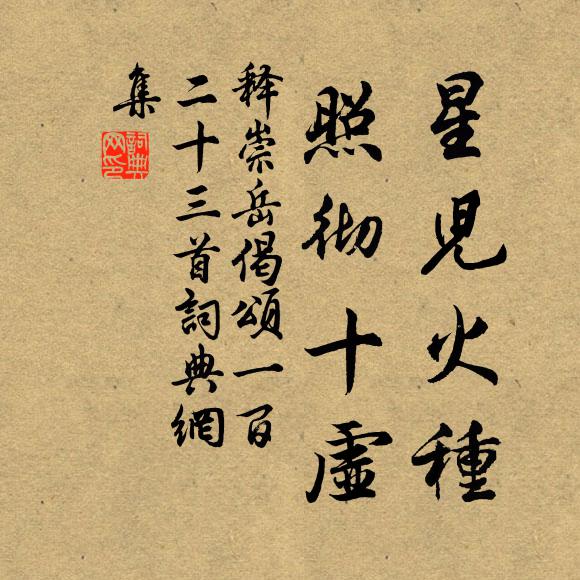 星兒火種
照彻十虛
释崇岳偈頌一百
二十三首詞典網
集
詞典
网印